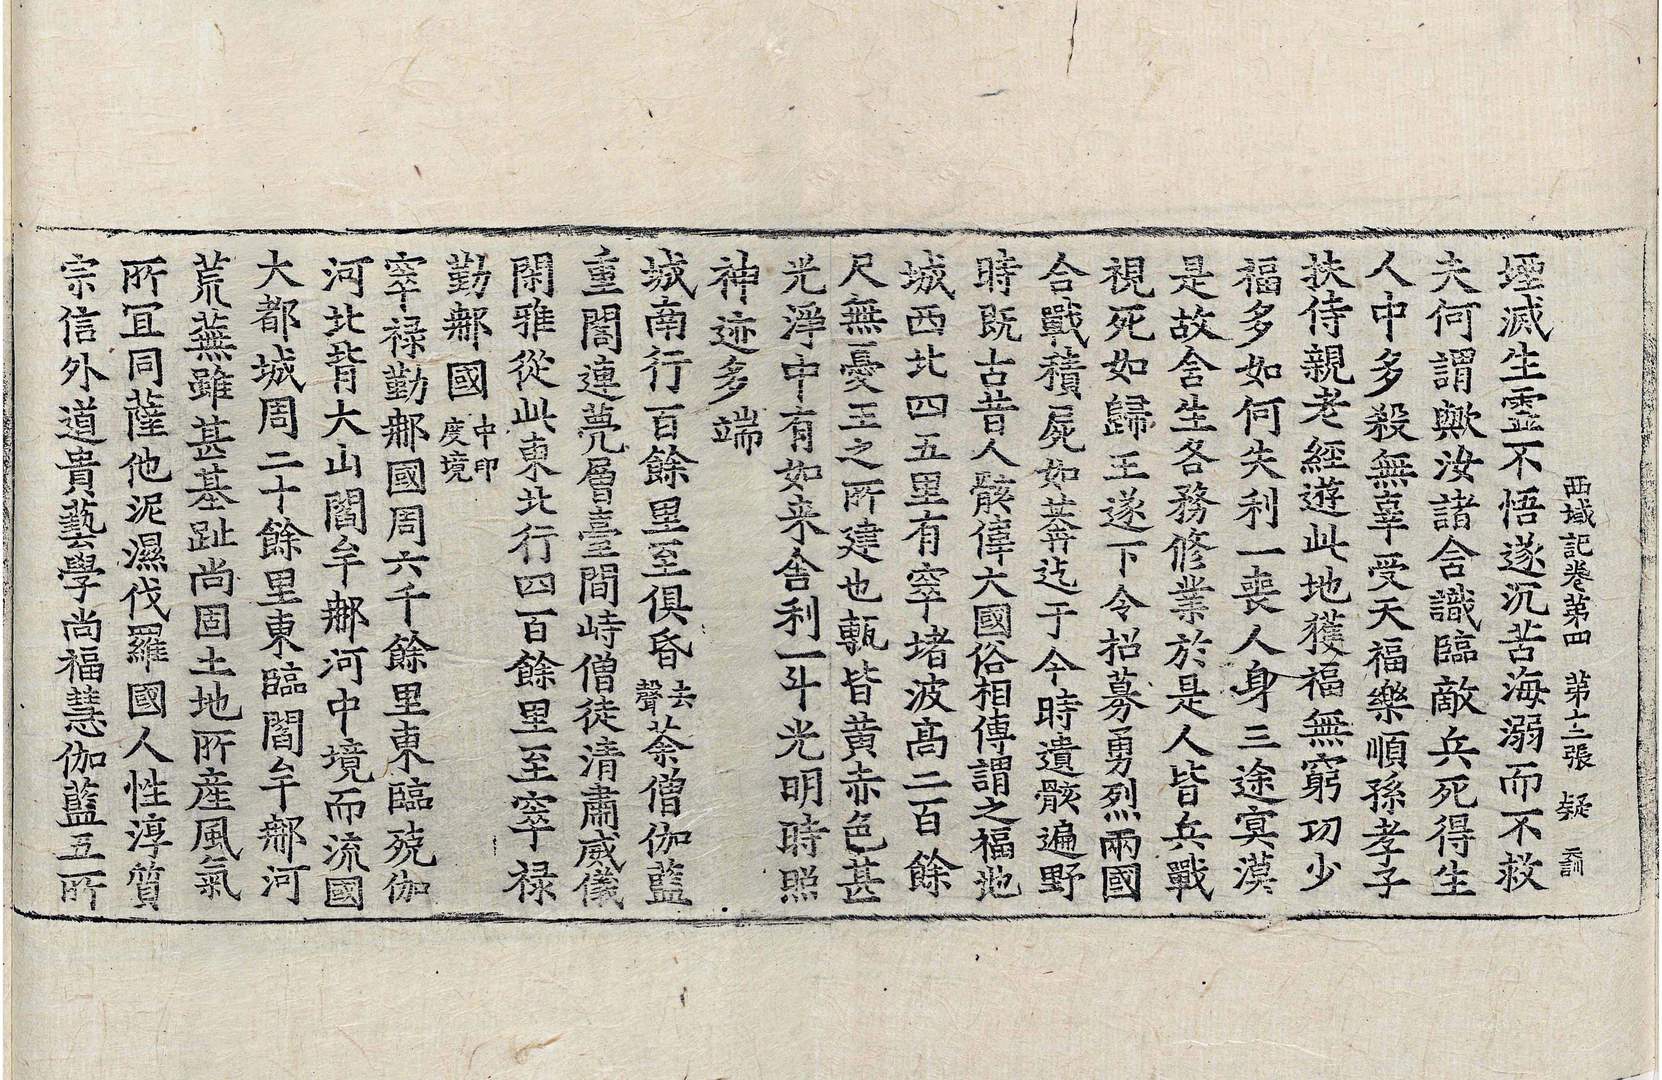 西域記卷第四 第十二張 疑 示訓
堙滅生靈不悟遂沉苦海溺而不救
夫何謂歟汝諸含識臨敵兵死得生
人中多殺無辜受天福樂順孫孝子
扶侍親老經遊此地獲福無窮功少
福多如何失利一喪人身三途冥漠
是故含生各務修業於是人皆兵戰
視死如歸王遂下令招募勇烈兩國
合戰積屍如莽迄于今時遺骸遍野
時既古昔人骸偉大國俗相傳謂之福地
城西北四五里有窣堵波高二百餘
尺無憂王之所建也甎皆黃赤色甚
光淨中有如来舍利一斗光明時照
神迹多端
城南行百餘里至俱昏去聲荼僧伽藍
重閣連甍層臺間峙僧徒清肅威儀
閑雅從此東北行四百餘里至窣禄
勤郍國中印度境
窣禄勤郍國周六千餘里東臨殑伽
河北背大山閻牟郍河中境而流國
大都城周二十餘里東臨閻牟郍河
荒蕪雖甚基趾尚固土地所產風氣
所冝同薩他泥濕伐羅國人性淳質
宗信外道貴藝學尚福慧伽藍五所